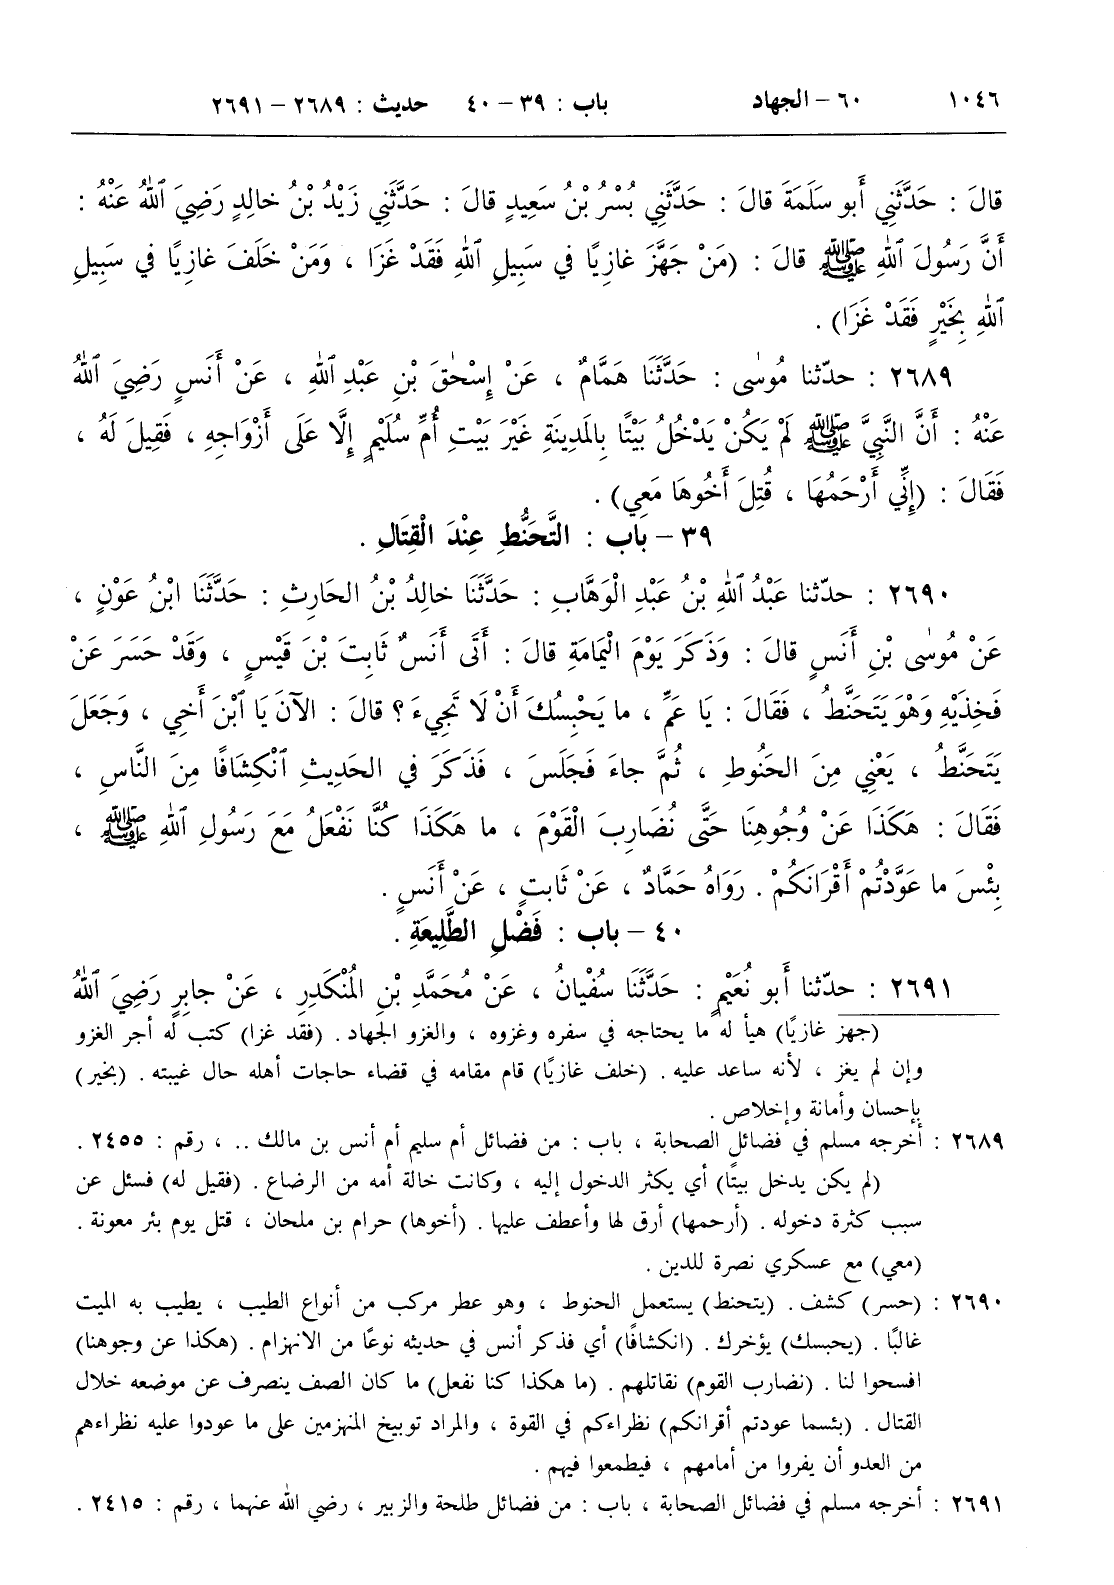 ١٠٤٦ ٦٠ - الجهاد باب : ٣٩ - ٤٠ حديث : ٢٦٨٩ - ٢٦٩١
قالَ : حَدَّثَنِي أَبو سَلَمَةَ قالَ : حَدَّثَنِي بُسْرُ بْنُ سَعِيدٍ قالَ : حَدَّثَنِي زَيْدُ بْنُ خالِدٍ رَضِيَ ٱللهُ عَنْهُ :
أَنَّ رَسُولَ ٱللهِ ﷺ قالَ : (مَنْ جَهَّزَ غازِيًا في سَبِيلِ ٱللهِ فَقَدْ غَزَا ، وَمَنْ خَلَفَ غازِيًا في سَبِيلِ
ٱللهِ بِخَيْرٍ فَقَدْ غَزَا) .
٢٦٨٩ : حدّثنا مُوسٰى : حَدَّثَنَا هَمَّامٌ ، عَنْ إِسْحٰقَ بْنِ عَبْدِ ٱللهِ ، عَنْ أَنَسٍ رَضِيَ ٱللهُ
عَنْهُ : أَنَّ النَّبِيَّ ﷺ لَمْ يَكُنْ يَدْخُلُ بَيْتًا بِالمَدِينَةِ غَيْرَ بَيْتِ أُمِّ سُلَيْمٍ إِلَّا عَلَى أَزْوَاجِهِ ، فَقِيلَ لَهُ ،
فَقَالَ : (إِنِّي أَرْحَمُهَا ، قُتِلَ أَخُوهَا مَعِي) .
٣٩ - بَاب : التَّحَنُّطِ عِنْدَ الْقِتَالِ .
٢٦٩٠ : حدّثنا عَبْدُ ٱللهِ بْنُ عَبْدِ الْوَهَّابِ : حَدَّثَنَا خالِدُ بْنُ الحَارِثِ : حَدَّثَنَا ابْنُ عَوْنٍ ،
عَنْ مُوسٰى بْنِ أَنَسٍ قالَ : وَذَكَرَ يَوْمَ الْيَمَامَةِ قالَ : أَتَى أَنَسٌ ثَابِتَ بْنَ قَيْسٍ ، وَقَدْ حَسَرَ عَنْ
فَخِذَيْهِ وَهْوَ يَتَحَنَّطُ ، فَقَالَ : يَا عَمِّ ، ما يَحْبِسُكَ أَنْ لَا تَجِيءَ ؟ قالَ : الآنَ يَا ٱبْنَ أَخِي ، وَجَعَلَ
يَتَحَنَّطُ ، يَعْنِي مِنَ الحَنُوطِ ، ثُمَّ جاءَ فَجَلَسَ ، فَذَكَرَ في الحَدِيثِ ٱنْكِشَافًا مِنَ النَّاسِ ،
فَقَالَ : هَكَذَا عَنْ وُجُوهِنَا حَتَّى نُضَارِبَ الْقَوْمَ ، ما هَكَذَا كُنَّا نَفْعَلُ مَعَ رَسُولِ ٱللهِ ﷺ ،
بِئْسَ ما عَوَّدْتُمْ أَقْرَانَكُمْ . رَوَاهُ حَمَّادٌ ، عَنْ ثَابِتٍ ، عَنْ أَنَسٍ .
٤٠ - باب : فَضْلِ الطَّلِيعَةِ .
٢٦٩١ : حدّثنا أَبو نُعَيْمٍ : حَدَّثَنَا سُفْيانُ ، عَنْ مُحَمَّدِ بْنِ المُنْكَدِرِ ، عَنْ جابِرٍ رَضِيَ ٱللهُ
(جهز غازيًا) هيأ له ما يحتاجه في سفره وغزوه ، والغزو الجهاد . (فقد غزا) كتب له أجر الغزو
وإن لم يغز ، لأنه ساعد عليه . (خلف غازيًا) قام مقامه في قضاء حاجات أهله حال غيبته . (بخير)
بإحسان وأمانة وإخلاص .
٢٦٨٩ : أخرجه مسلم في فضائل الصحابة ، باب : من فضائل أم سليم أم أنس بن مالك .. ، رقم : ٢٤٥٥ .
(لم يكن يدخل بيتًا) أي يكثر الدخول إليه ، وكانت خالة أمه من الرضاع . (فقيل له) فسئل عن
سبب كثرة دخوله . (أرحمها) أرق لها وأعطف عليها . (أخوها) حرام بن ملحان ، قتل يوم بئر معونة .
(معي) مع عسكري نصرة للدين .
٢٦٩٠ : (حسر) كشف . (يتحنط) يستعمل الحنوط ، وهو عطر مركب من أنواع الطيب ، يطيب به الميت
غالبًا . (يحبسك) يؤخرك . (انكشافًا) أي فذكر أنس في حديثه نوعًا من الانهزام . (هكذا عن وجوهنا)
افسحوا لنا . (نضارب القوم) نقاتلهم . (ما هكذا كنا نفعل) ما كان الصف ينصرف عن موضعه خلال
القتال . (بئسما عودتم أقرانكم) نظراءكم في القوة ، والمراد توبيخ المنهزمين على ما عودوا عليه نظراءهم
من العدو أن يفروا من أمامهم ، فيطمعوا فيهم .
٢٦٩١ : أخرجه مسلم في فضائل الصحابة ، باب : من فضائل طلحة والزبير ، رضي الله عنهما ، رقم : ٢٤١٥ .